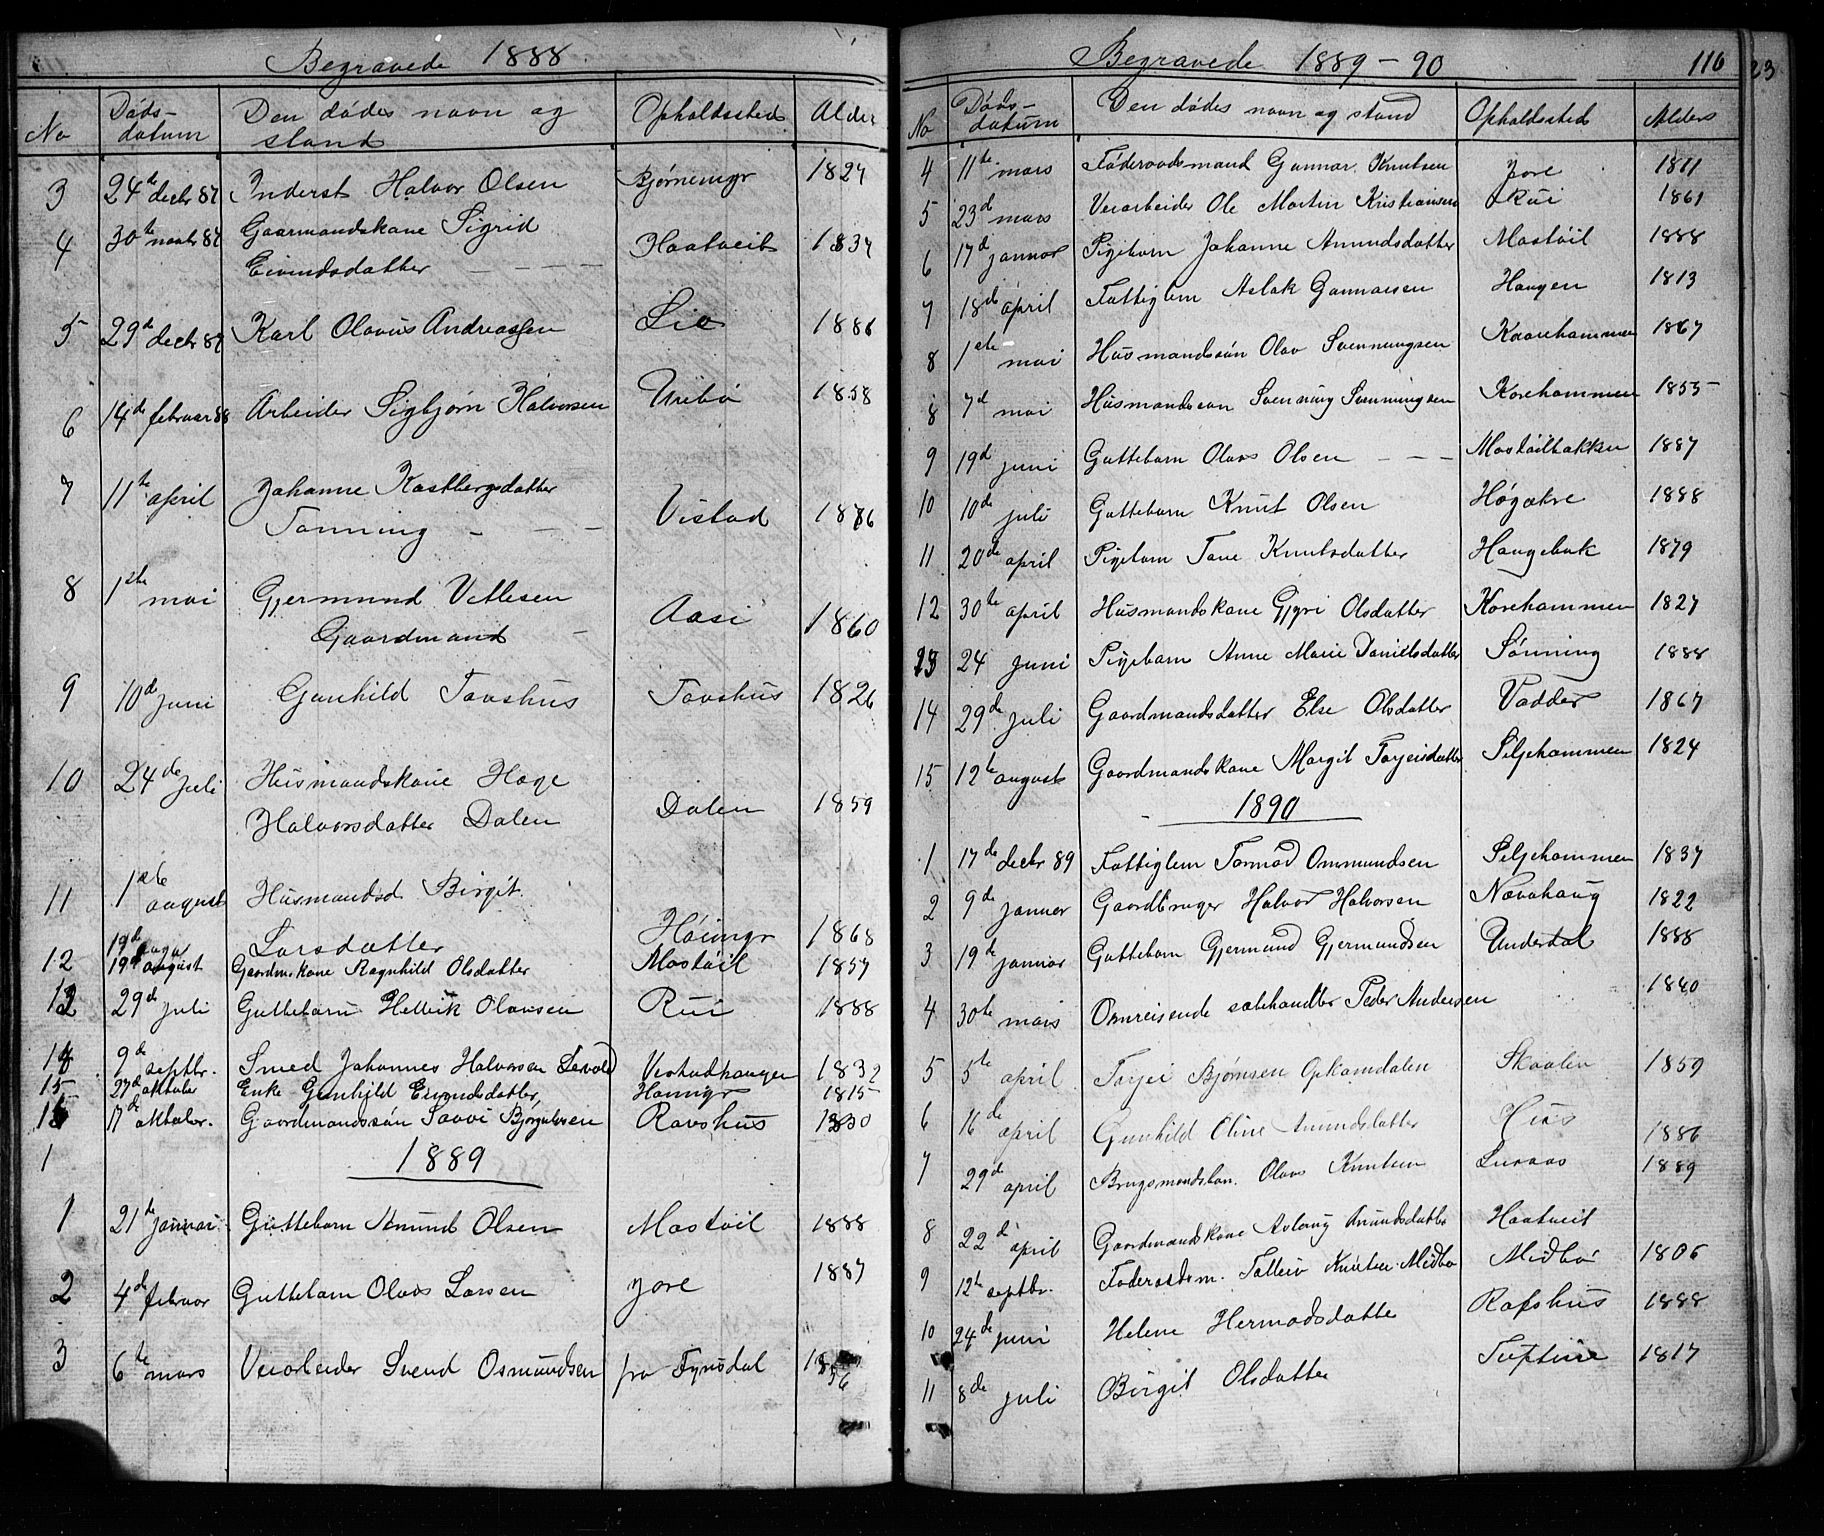 Begravede 1888.
No Døds-datum Den dødes navn og stand Opholdssted Alder
3 24de decbr 87 Inderst Halvor Olsen Bjørnemyr 1827
4 30te novbr 87 Gaarmandskone Sigrid
Eivindsdatter - - - - Haatveit 1837
5 29de decbr 87 Karl Olavus Andreassen Lie 1886
6 14de februar 88 Arbeider Sigbjørn Halvorsen Uribø 1858
7 11te april Johanne Kostbergsdatter
Tønning - - - Vistad 1886
8 1ste mai Gjermund Vetlesen
Gaardmand - Aasi 1860
9 10de juni Gunhild Tovshus Tovshus 1826
10 24de juli Husmandskone Hæge
Halvorsdatter Dalen Dalen 1859
11 1ste august Husmandsd Birgit
Larsdatter Høimyr 1868
12 19de august Gaardm.kone Ragnhild Olsdatter Mostøil 1857
13 29de juli Guttebarn Hellik Olavsen Rui 1888
14 9de septbr. Smed Johannes Halvorsen Vistadhaugen 1832
15 27de oktober Enke Gunhild Eivindsdatter, Høimyr 1815
16 17de oktober. Gaardmandssøn Saavi Bjørgulvsen Ravshus 1830
1 1889
1 21de januar Guttebarn Amund Olsen Mostøil 1888
2 4de februar Guttebarn Olavs Larsen Jore 1887
3 6te mars Veiarbeider Svend Osmundsen fra Fyrisdal 1856
Begravede 1889-90 116
23
No Døds-datum Den dødes navn og stand Opholdssted Alders
4 11te mars Føderaadsmand Gunnar Knutsen Jore 1811
5 23d mars Veiarbeider Ole Martin Kristiansen Rui 1861
6 17d januar Pigebarn Johanne Amundsdatter Mostøil 1888
7 18de april Fattiglem Aslak Gunnarsen Haugen 1813
8 1ste mai Husmandssøn Olav Svenningsen Kaarehommen 1867
8 7d mai Husmandssøn Svenning Svenningsen Korehommen 1855
9 19d juni Guttebarn Olavs Olsen - - - Mostøilbakken 1887
10 10de juli Guttebarn Knut Olsen Høgakre 1888
11 20de april Pigebarn Tone Knutsdatter Haugebak 1879
12 30te april Husmandskone Gyri Olsdatter Korehommen 1827
13 24 juni Pigebarn Anne Marie Danielsdatter Tønning 1888
14 29de juli Gaardmandsdatter Else Olsdatter Vadder 1867
15 12te august Gaardmandskone Margit Torjeisdatter Siljehommen 1824
1890
1 17de decbr 89 Fattiglem Tormod Ommundsen Siljehommen 1837
2 9de januar Gaardbruger Halvor Halvorsen Navahaug 1822
3 19de januar Guttebarn Gjermund Gjermundsen Underdal 1888
4 30te mars Omreisende Peder Andersen 1840
5 5te april Torjei Bjørnsen Opkomdalen Skaalen 1859
6 16de april Gunhild Oline Amundsdatter Huus 1886
7 29de april Olavs Knutsen Luraas 1889
8 22d april Gaardmandskone Aslaug Amundsdatter Haatveit
9 12te septbr. Føderaadsm. Talleiv Knutsen Midbø Midbø 1806
10 24de juni Helene Hermodsdatte Rafshus 1888
11 8de juli Birgit Olsdatter 1817